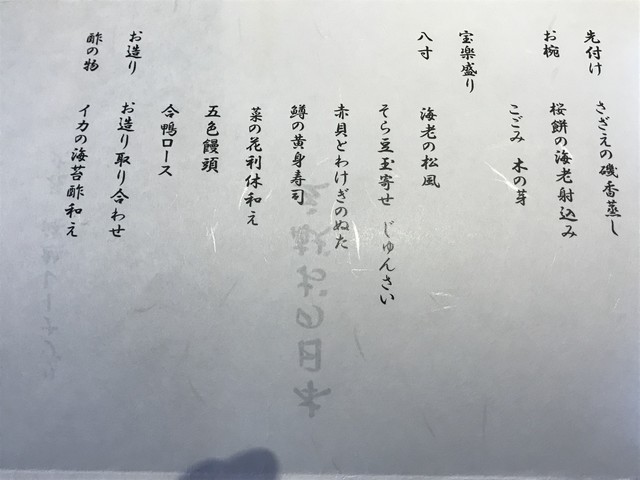 先付け　さざえの磯香蒸し
お椀　桜餅の海老射込み
こごみ　木の芽
宝楽盛り
八寸　海老の松風
そら豆玉寄せ　じゅんさい
赤貝とわけぎのぬた
鱒の黄身寿司
菜の花利休和え
五色饅頭
合鴨ロース
お造り　お造り取り合わせ
酢の物　イカの海苔酢和え
本日のお献立